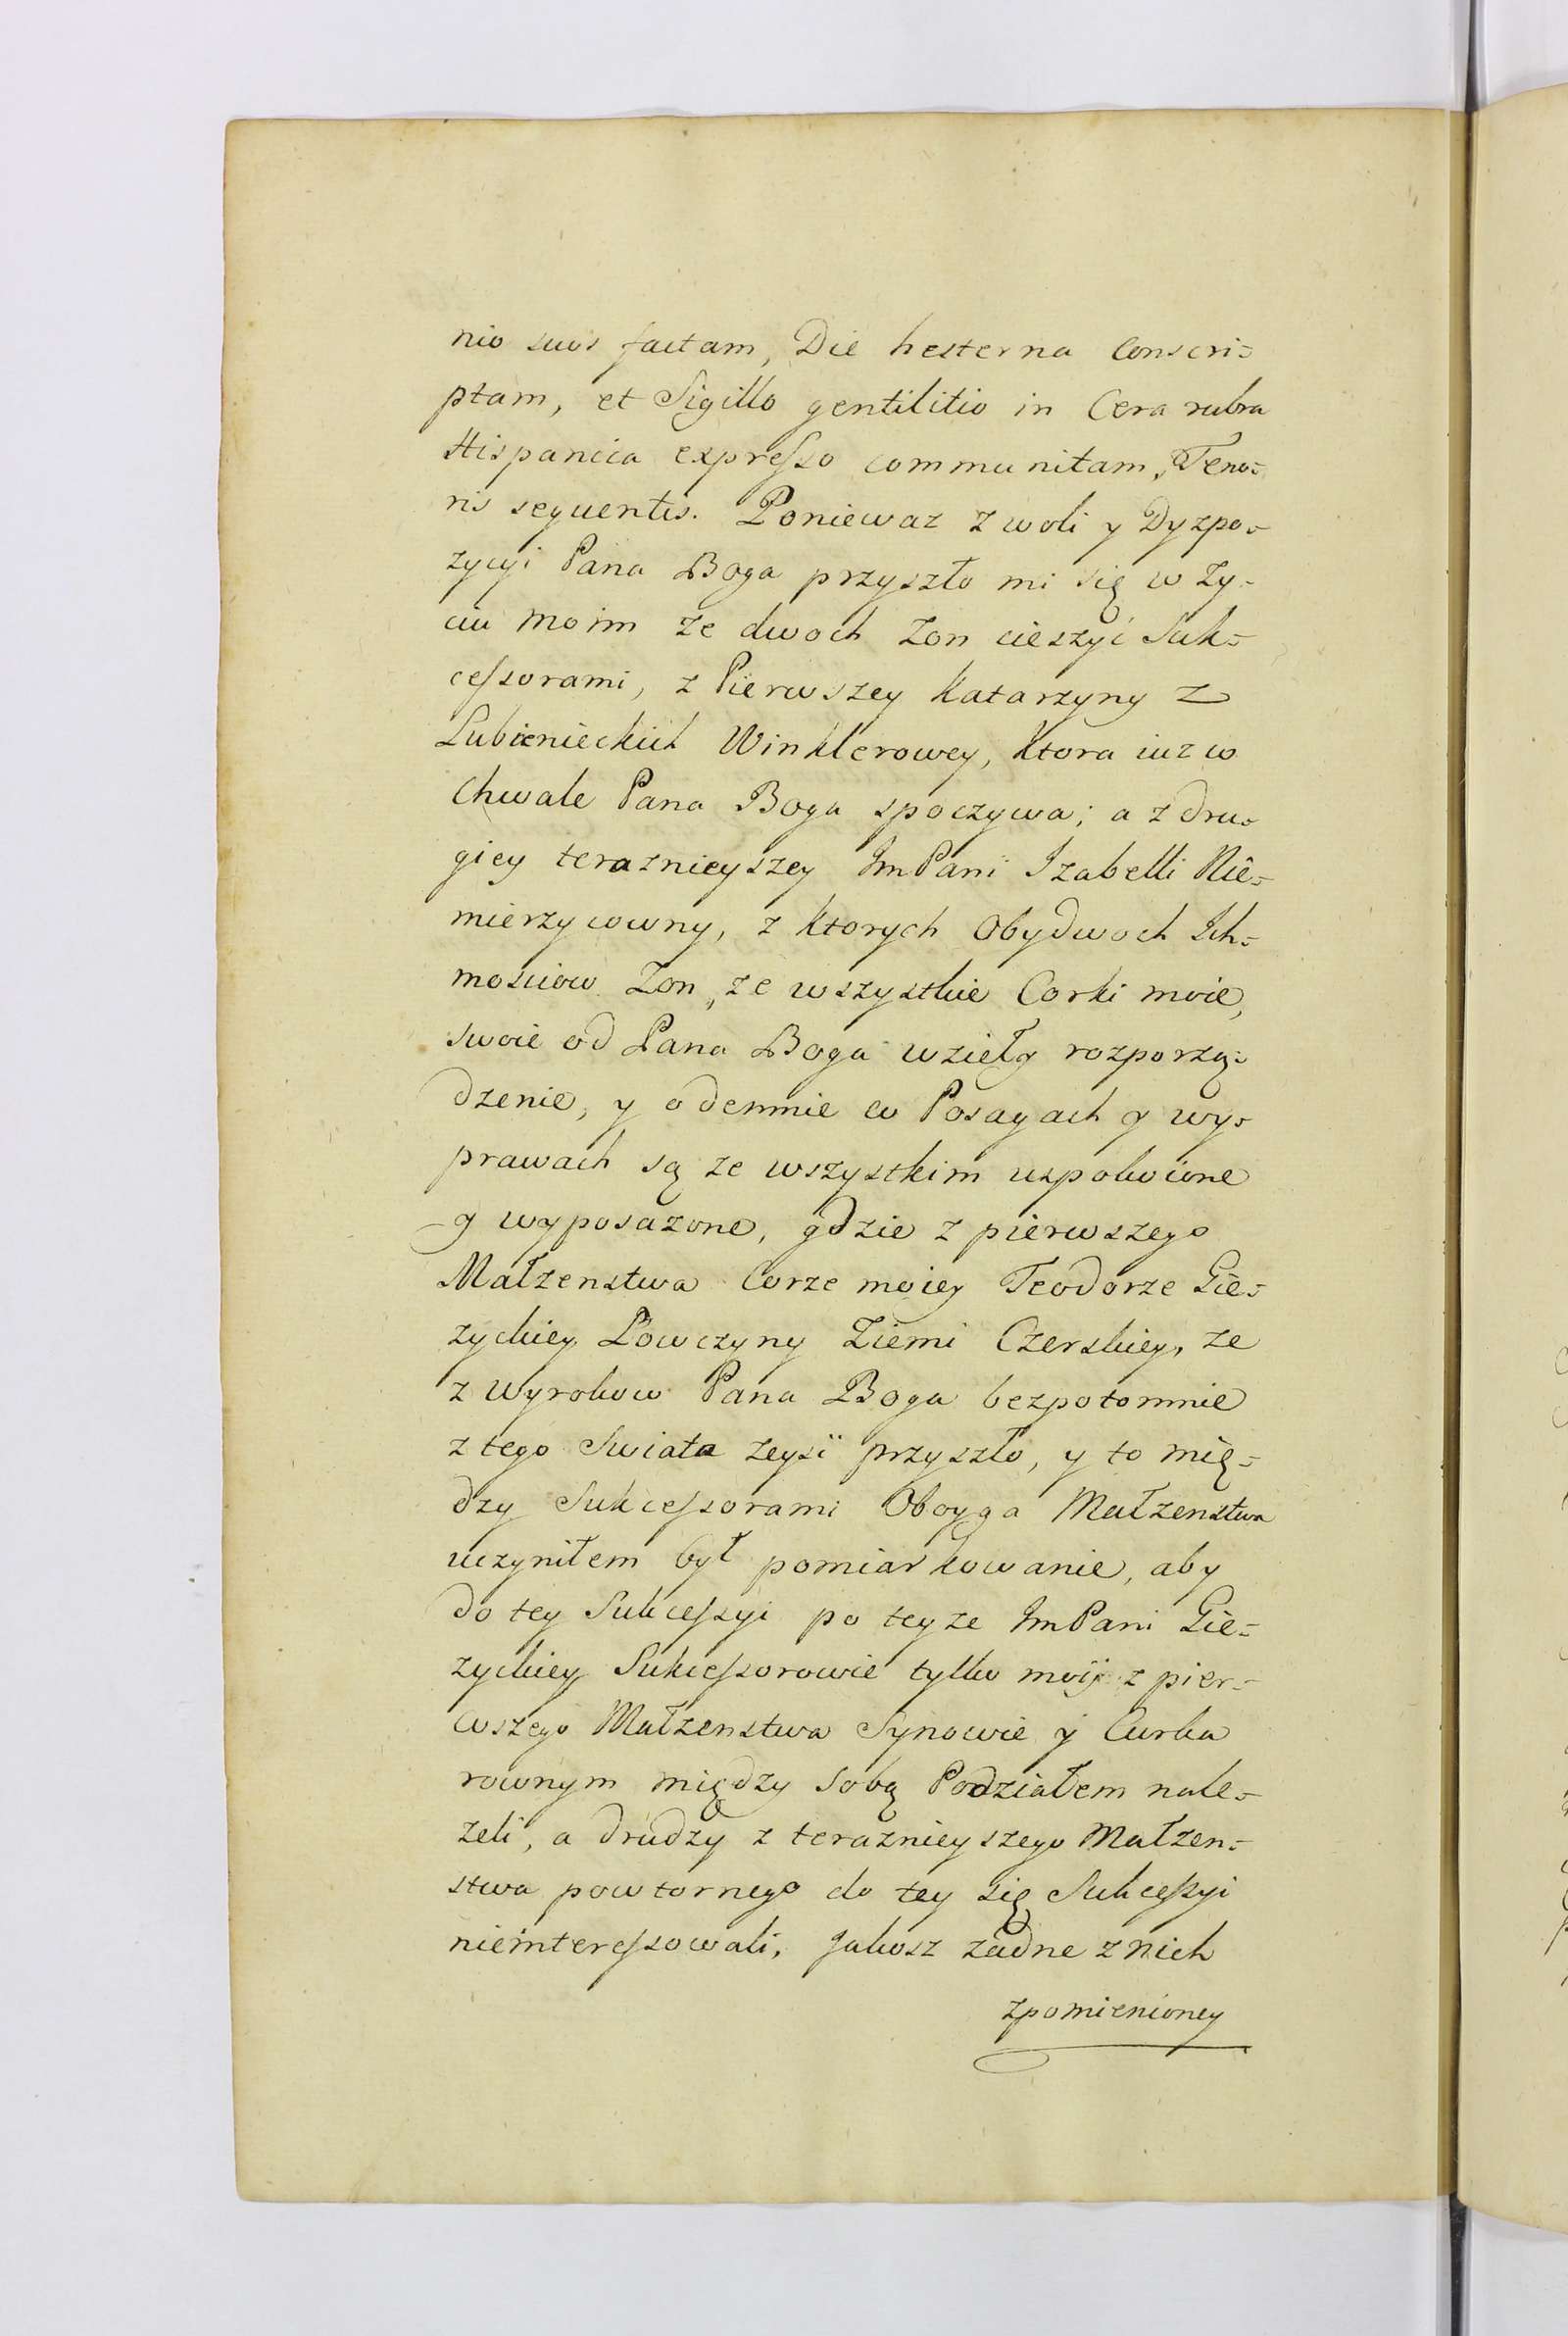 nio suos factam, Die hesterna Conscri=
ptam, et Sigillo gentilitio in Cera rubra
Hispanica expresso communitam, Teno=
ris sequentis. Poniewaz z woli y Dyzpo=
zycyi Pana Boga przyszło mi się w zy=
ciu moim ze dwoch Zon cieszyć Suk=
cessorami, z Pierwszey Katarzyny z
Lubienieckich Winklerowey, ktora iuz w
Chwale Pana Boga spoczywa; a z dru=
giey teraznieyszey ImPani Izabelli Nie=
mierzycowny, z ktorych Obydwoch Ich=
mosciow Zon, ze wszystkie Corki moie,
swoie od Pana Boga wzieły rozporzą=
dzenie, y odemnie w Posagach y wy=
prawach są ze wszystkim uspokoione
y wyposazone, gdzie z pierwszego
Małzenstwa Corze moiey Teodorze Gie=
zyckiey Łowczyny Ziemi Czerskiey, ze
z Wyrokow Pana Boga bezpotomnie
z tego Swiata zeysć przyszło, y to mię=
dzy Sukcessorami Oboyga Małzenstwa
uczyniłem był pomiarkowanie, aby
do tey Sukcessyi po teyze ImPani Gie=
zyckiey Sukcessorowie tylko moij z pier=
wszego Małzenstwa Synowie y Curka
rownym między sobą Podziałem nale=
zeli, a drudzy z teraznieyszego Małzen=
stwa powtornego do tey się Sukcessyi
nieinteressowali, Jakosz zadne z nich
zpomienioney